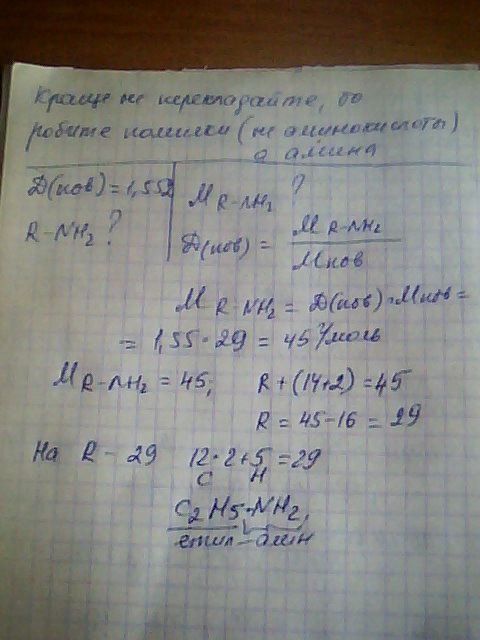 Краще не перекладайте, бо
робите помилки (не аминокислоты)
а амина
D(пов) = 1,552
R-NH2 ?
M R-NH2 ?
D(пов) = M R-NH2 / Mпов
M R-NH2 = D(пов)·Mпов =
= 1,55·29 = 45 г/моль
M R-NH2 = 45; R+(14+2) = 45
R = 45-16 = 29
На R - 29 12·2+5 = 29
C H
C2H5-NH2,
етил-амін